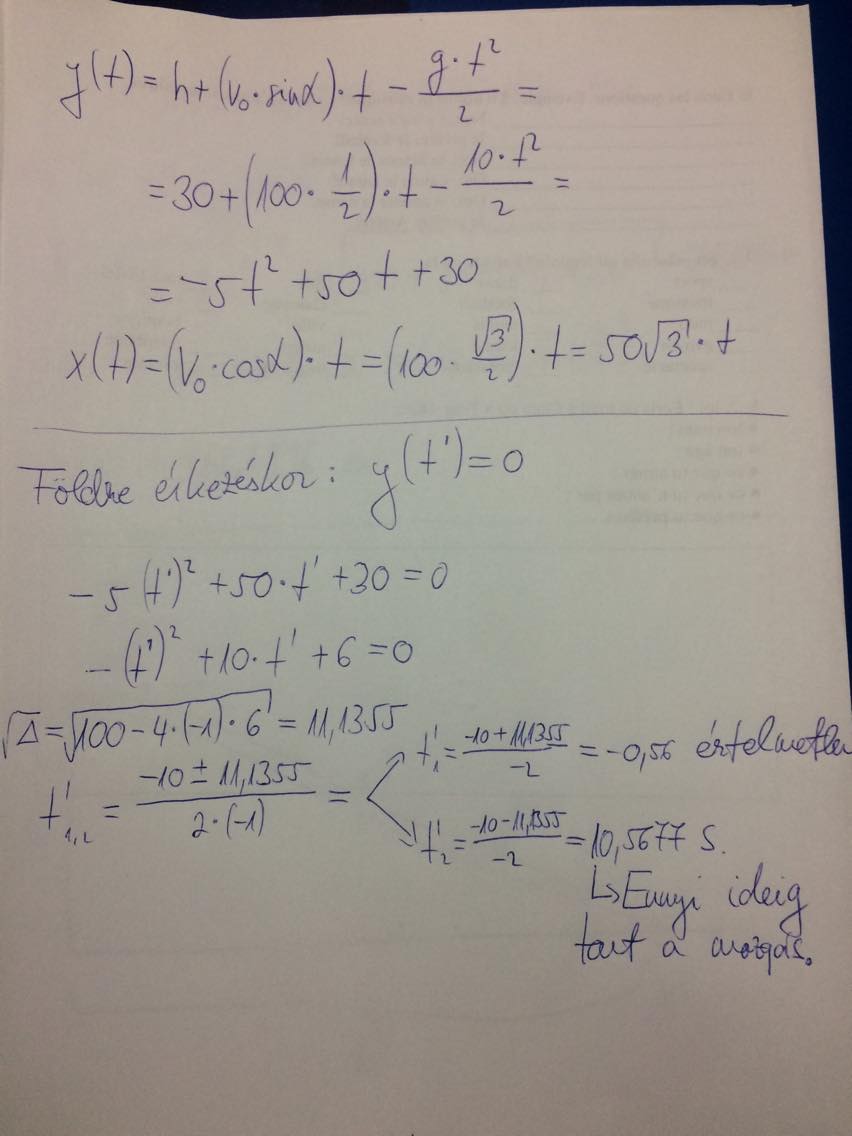 y(t) = h + (v₀·sinα)·t − g·t²/2 =
= 30 + (100 · 1/2)·t − 10·t²/2 =
= −5t² + 50t + 30
x(t) = (v₀·cosα)·t = (100 · √3/2)·t = 50√3·t
Földre érkezéskor: y(t') = 0
−5(t')² + 50·t' + 30 = 0
−(t')² + 10·t' + 6 = 0
√Δ = √100 − 4·(−1)·6 = 11,1355
t'₁,₂ = −10 ± 11,1355 / 2·(−1) =
t'₁ = −10 + 11,1355 / −2 = −0,56 értelmetlen
t'₂ = −10 − 11,1355 / −2 = 10,5677 s.
↳ Ennyi ideig
tart a mozgás.